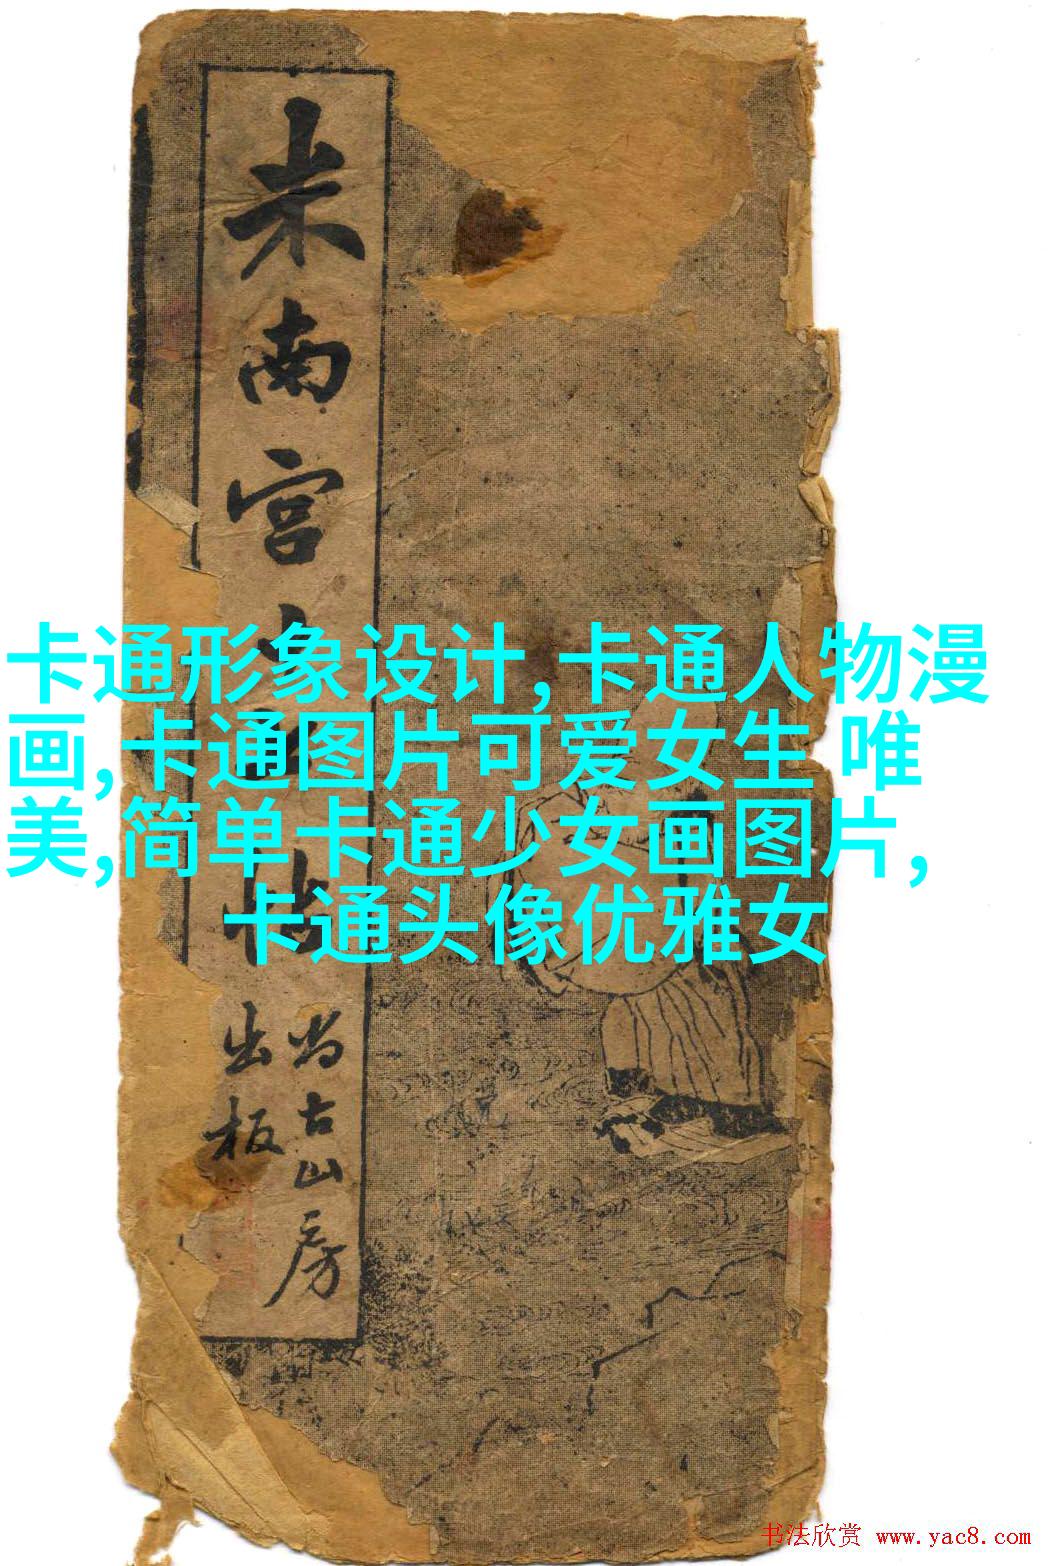 米南宫
帖
尚古山房
出板
卡通形象设计,卡通人物漫
画,卡通图片可爱女生 唯
美,简单卡通少女画图片,
卡通头像优雅女
书法欣赏 www.yac8.com